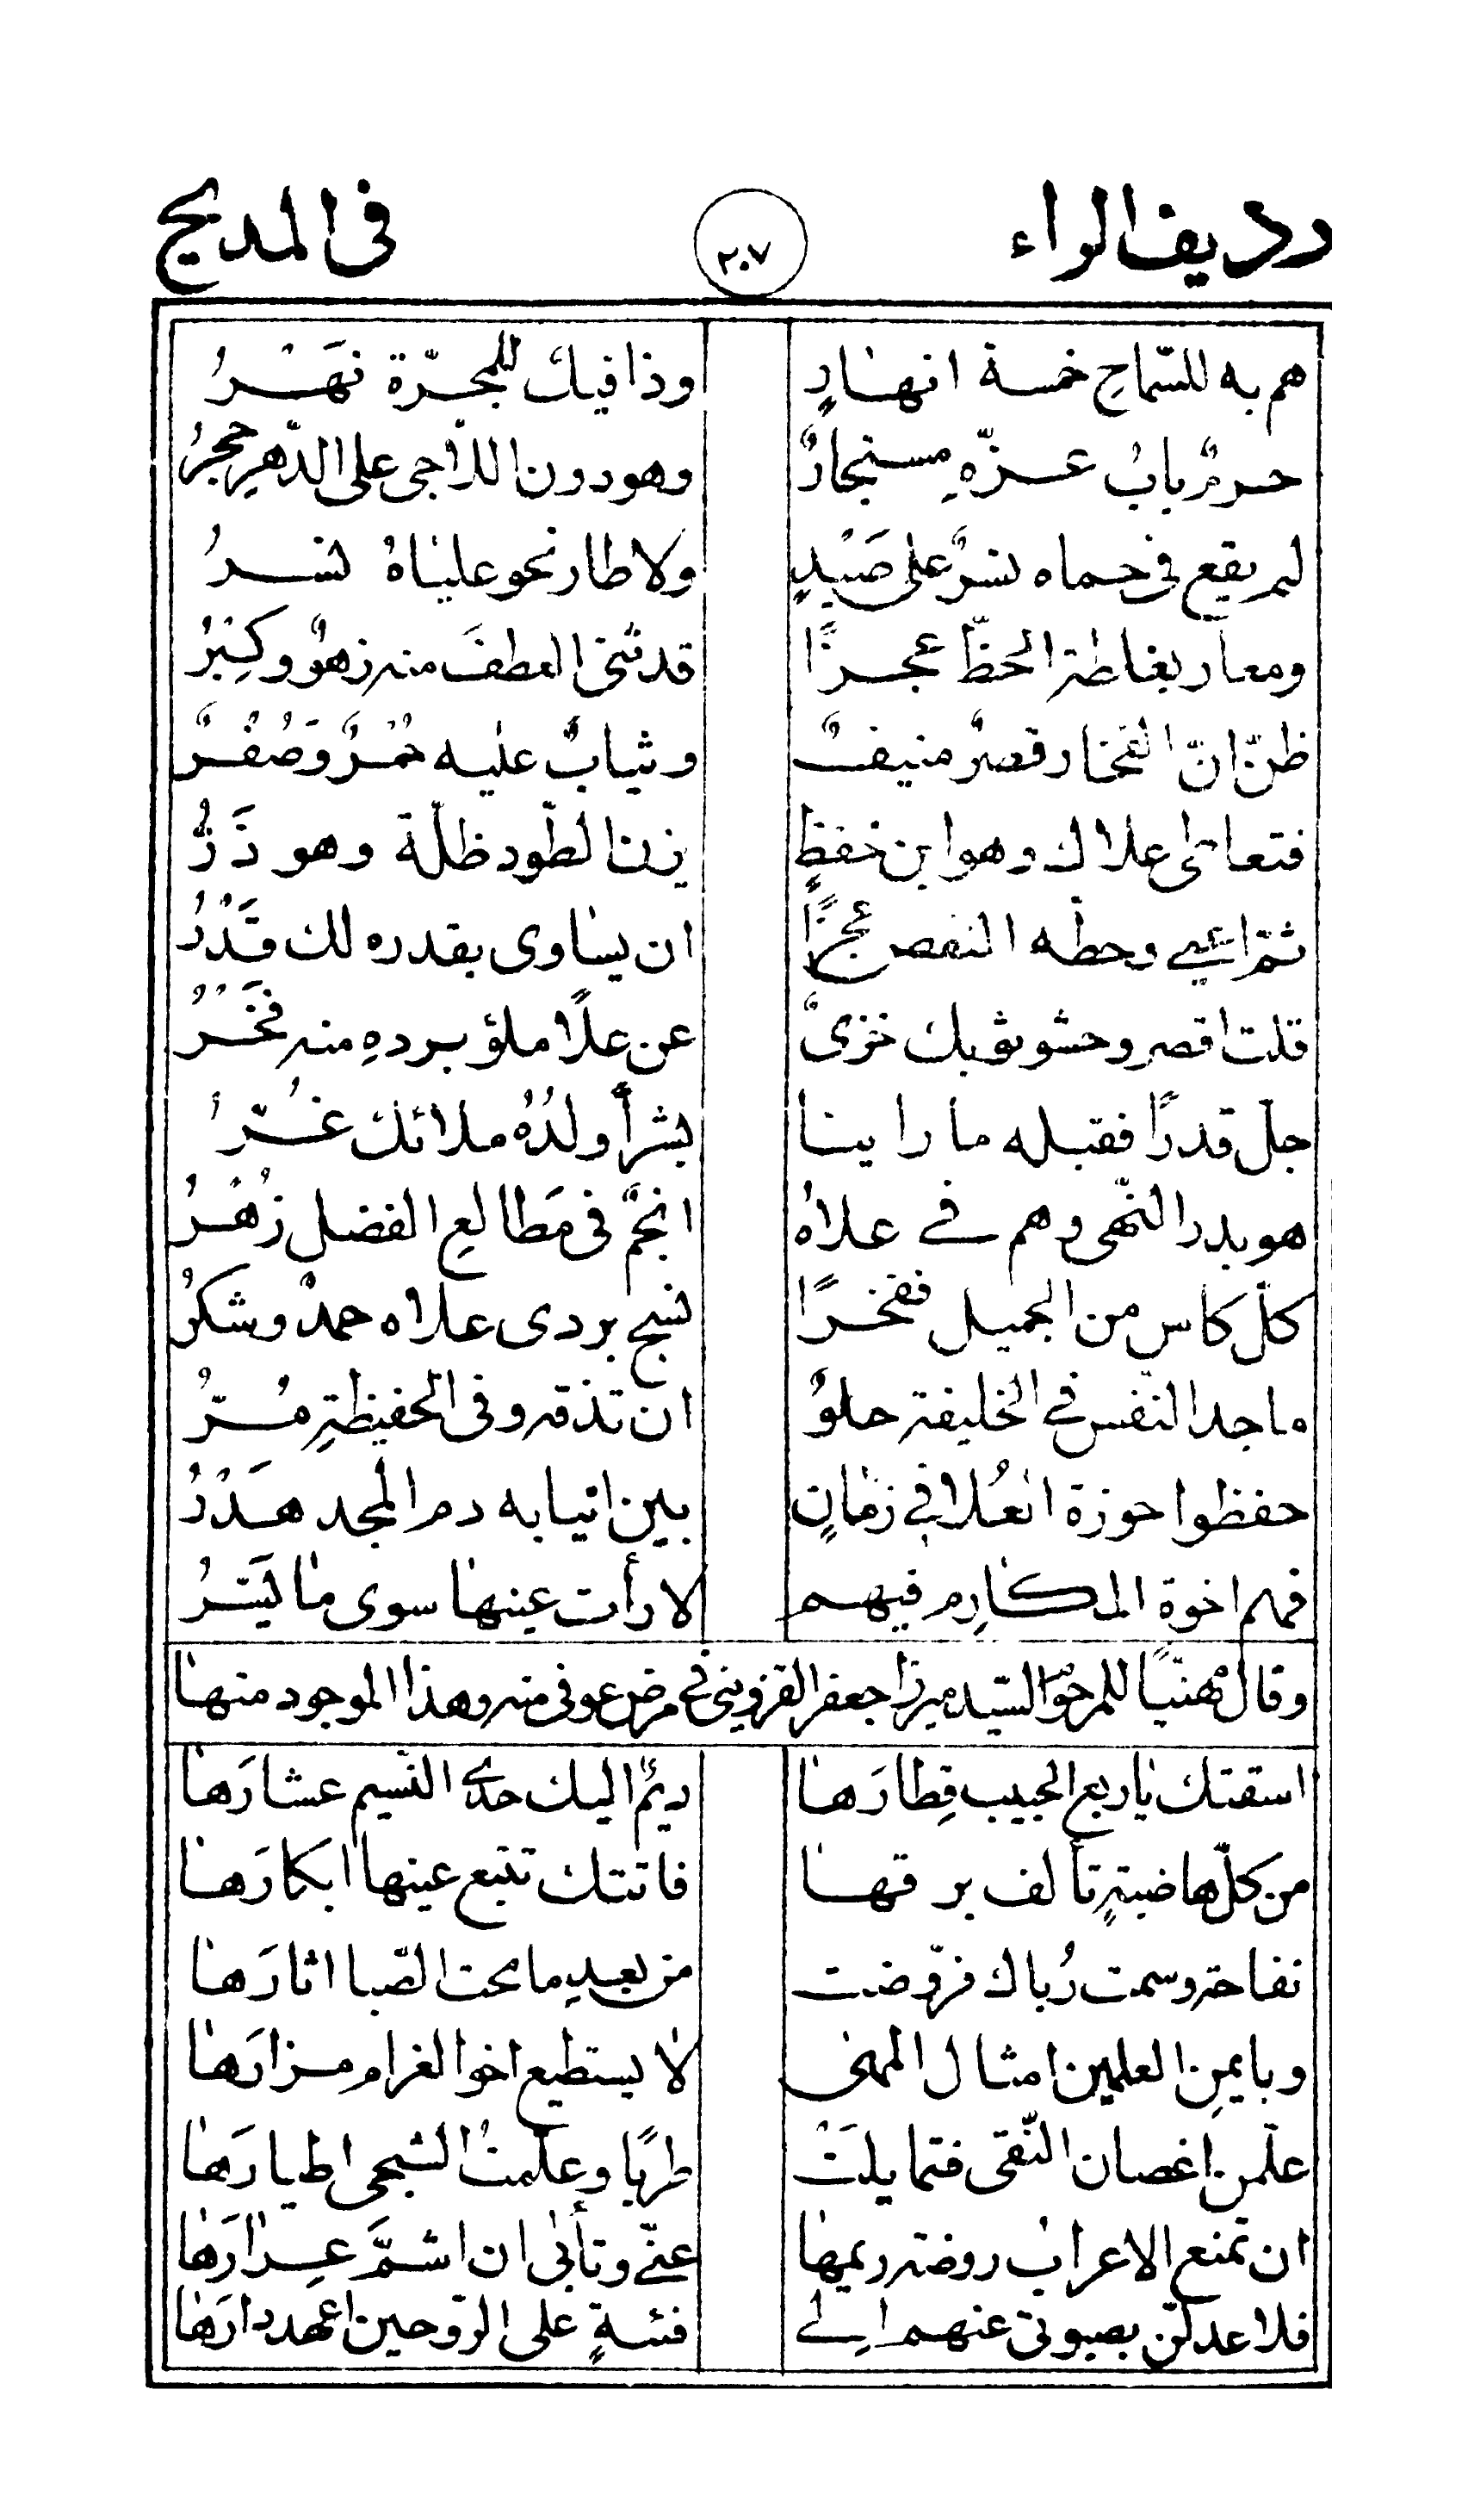 رديف الراء ٢٠٧ فى المديح
هم به للسّماحِ خمسة انهارٍ وذا فيك للمجرّة نَهَرُ
حرمٌ بابُ عزّهِ مستجارٌ وهو دون اللاّجى على الدّهرِ حجرُ
لم يقع فى حماه نسرٌ على صَيْدٍ ولا طار نحو علياهُ نسرُ
ومعارٍ بغاطة الحظّ عجزًا قد ثنى العطفَ منه زهوٌ وكِبْرُ
ظنّ انّ الفخار قصرٌ منيفٌ وثيابٌ عليه حُمْرٌ وَصُفْرٌ
فتعاطى علاك وهو ابن خفضٍ يزن الطّود ظلّة وهو ذَرُّ
ثمّ اعيى وحطّه النقص عجزًا ان يساوى بقدره لك قَدْرُ
قلت اقصر وحشو ثوبك خزىٌ عن علاً ملؤ بردهِ منه فَخْرُ
جلّ قدرًا فقبله ما راينا بشراً ولدُهُ ملائك غُرُّ
هو بدر النّهى وهم فى علاهُ انجمٌ فى مَطالعِ الفضل زُهْرُ
كلّ كاسٍ من الجميل ففخرًا نسج بردى علاه حمدٌ وشكرُ
ماجد النّفس فى الخليقة حلوٌ ان تذقه وفى الحفيظةِ مُرُّ
حفظوا حوزة العُلا فى زمانٍ بين انيابه دم المجد هَدْرُ
فهم اخوة المكارِم فيهم لا رأت عينها سوى ما يَسُرُّ
وقال مهنّيًا للمرحوم السّيد ميرزا جعفر القزوينى فى مرض عوفى منه وهذا الموجود منها
استقتك يا ربع الحبيب قِطارَها ديمٌ اليك حدى النّسيم عشارَها
من كلّ هاضبةٍ تألف برقها فاتتك تتبع عينها ابكارَها
نفاحة وسمت رُباك فروّضت من بعدِ ما محت الصّبا اثارَها
وبايمنِ العلمين امثال المهى لا يستطيع اخو الغرام مزارَها
علّمن اغصان النّقى فتمايلَتْ طربًا وعلّمتُ الشجى اطيارَها
ان تمنع الاعراب روضة ريمها عنّى وتأبى ان اشمَّ عرارَها
فلاعدلنّ بصبوتى عنهم الى فئةٍ على الرّوحين اعهد دارَها